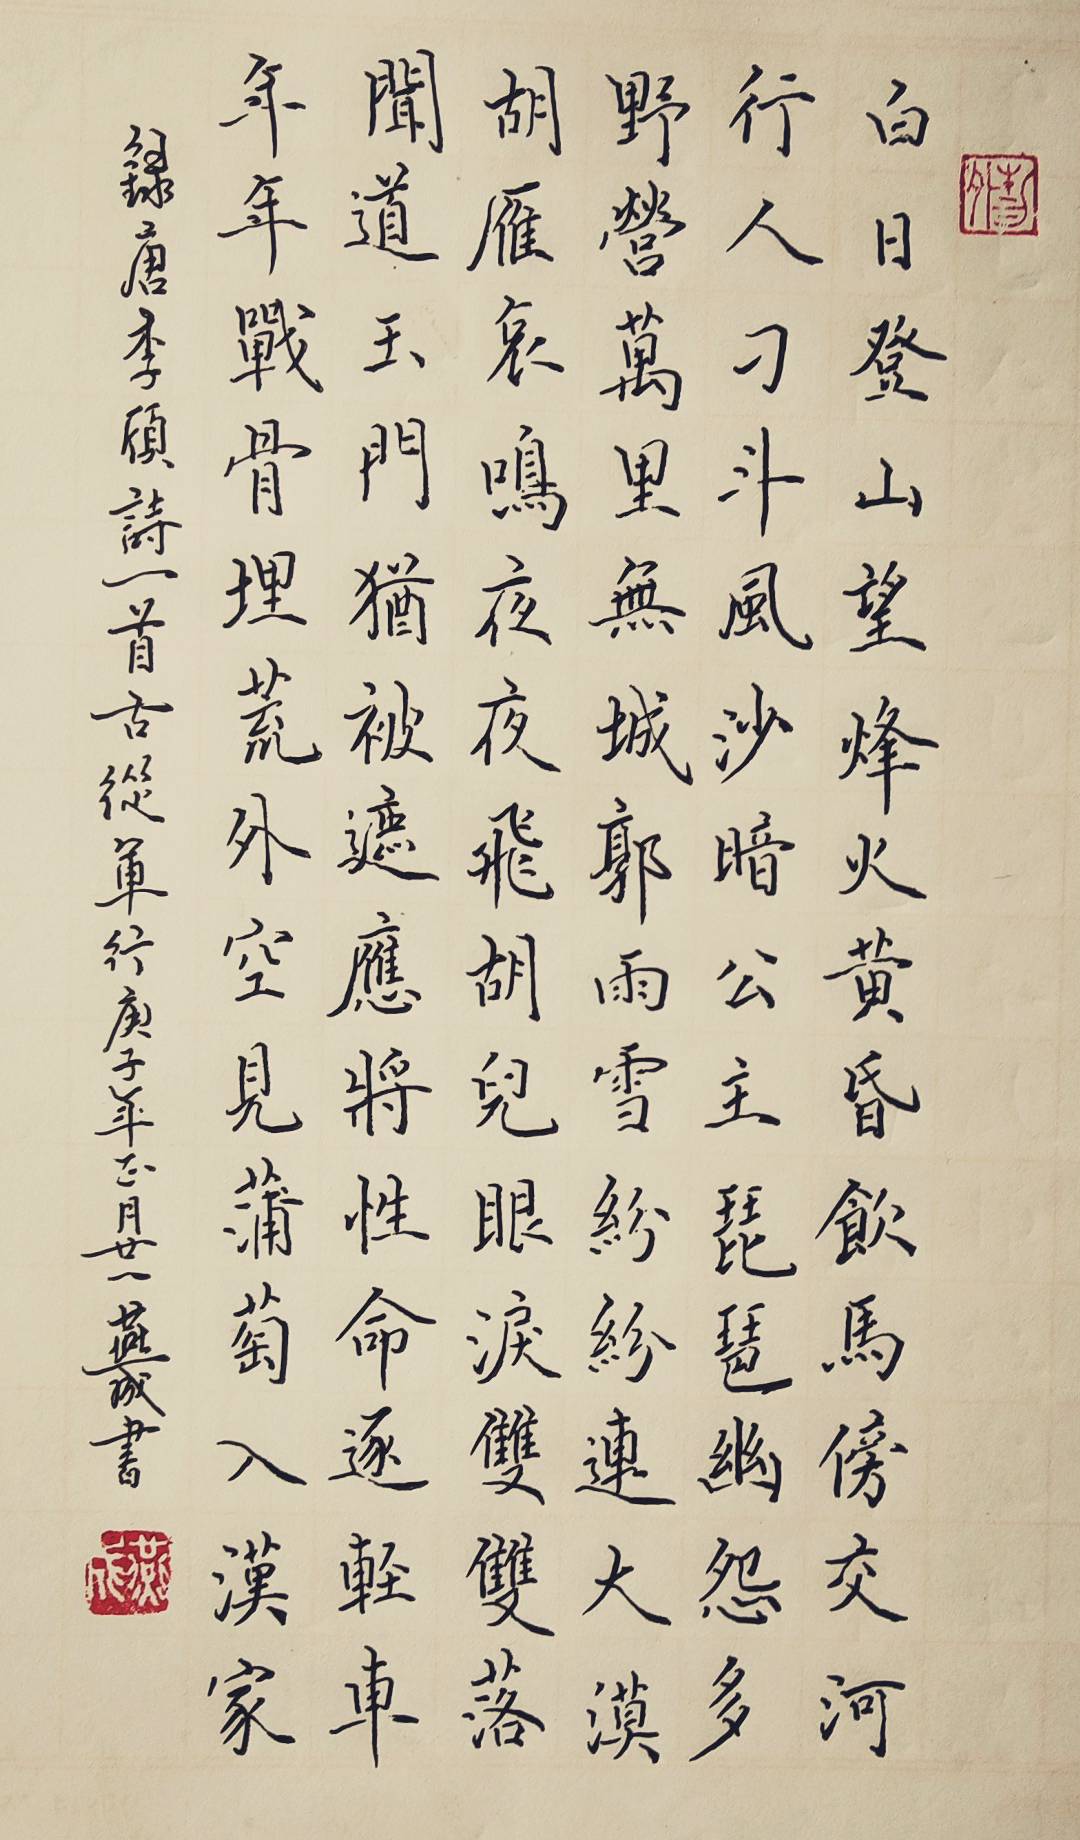 白日登山望烽火黃昏飲馬傍交河
行人刁斗風沙暗公主琵琶幽怨多
野營萬里無城郭雨雪紛紛連大漠
胡雁哀鳴夜夜飛胡兒眼淚雙雙落
聞道玉門猶被遮應將性命逐輕車
年年戰骨埋荒外空見蒲萄入漢家
錄唐李頎詩一首古從軍行庚子年正月廿一燕成書